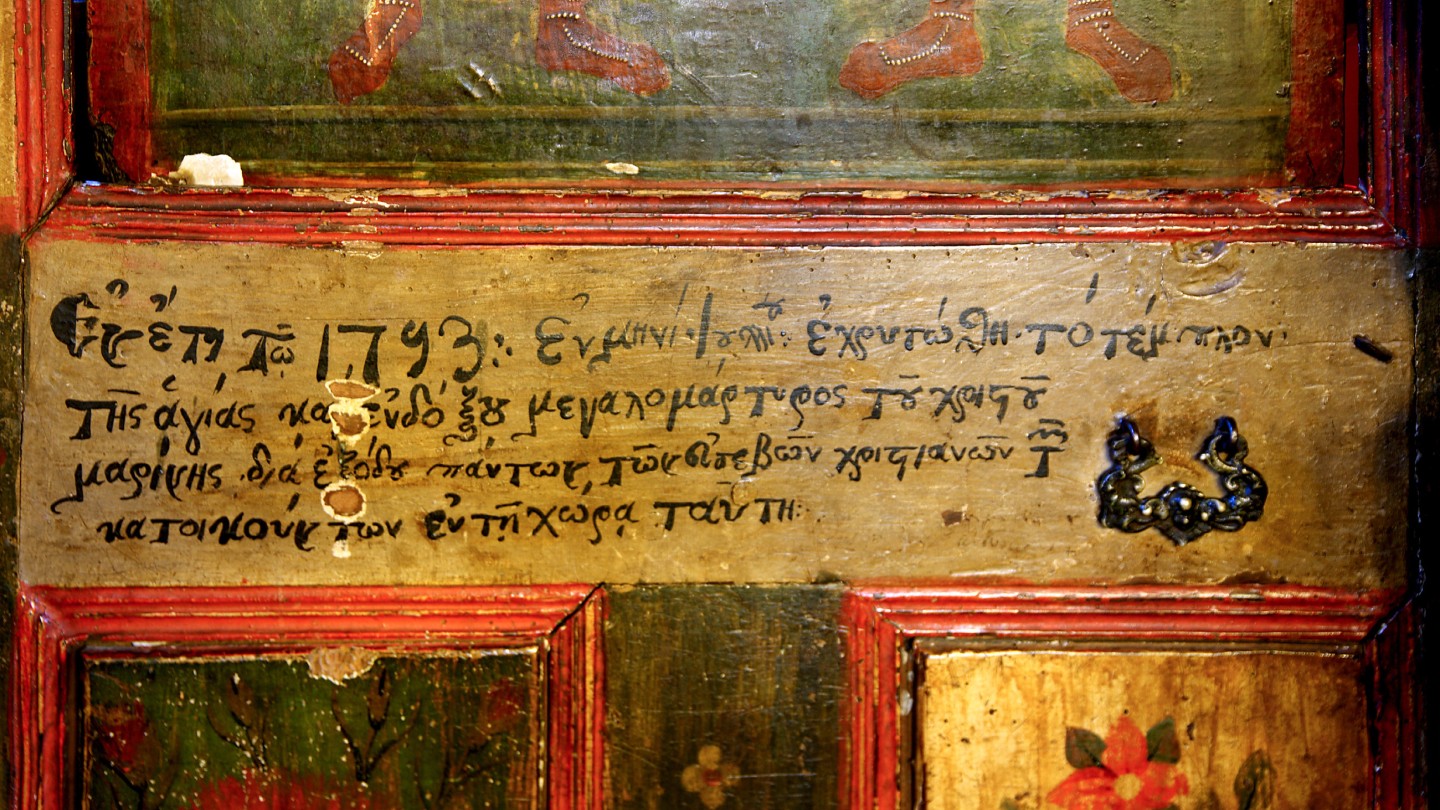 Ἐν ἔτη τῷ 1793: ἐν μηνί Ἰουλίου: ἐχρυσώθη τό τέμπλον.
Τῆς ἁγίας καὶ ἐνδόξου μεγαλομάρτυρος τοῦ χριστοῦ
μαρίνης διά ἐξόδου πάντων τῶν εὐσεβῶν χριστιανῶν τῶν
κατοικούντων ἐν τῇ χώρᾳ ταύτη: